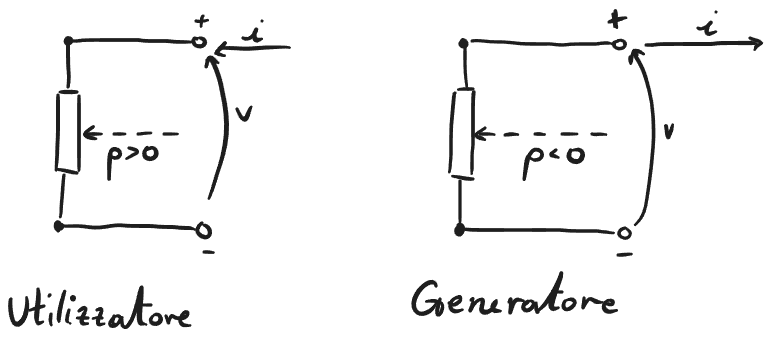 + i
v
p>0
-
Utilizzatore
+ i
v
p<0
-
Generatore